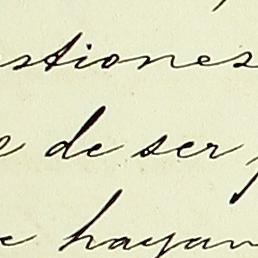 stiones
de ser
hayan